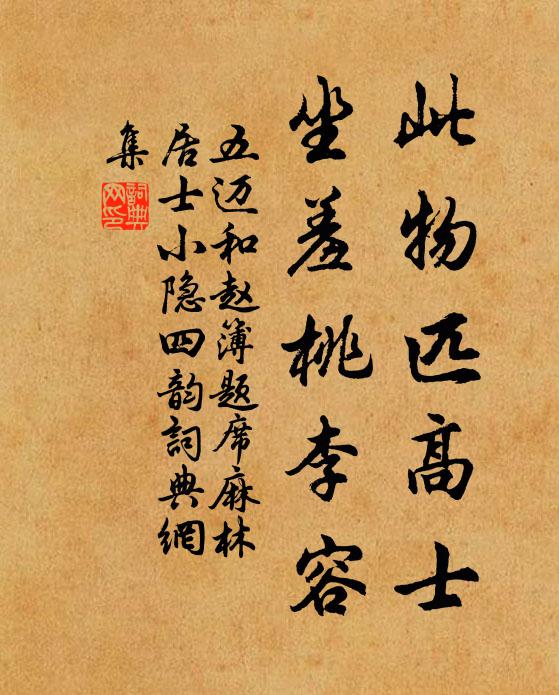 此物匹高士
坐羞桃李容
五迈和赵簿题席麻林
居士小隐四韵詞典網
集
詞典网印